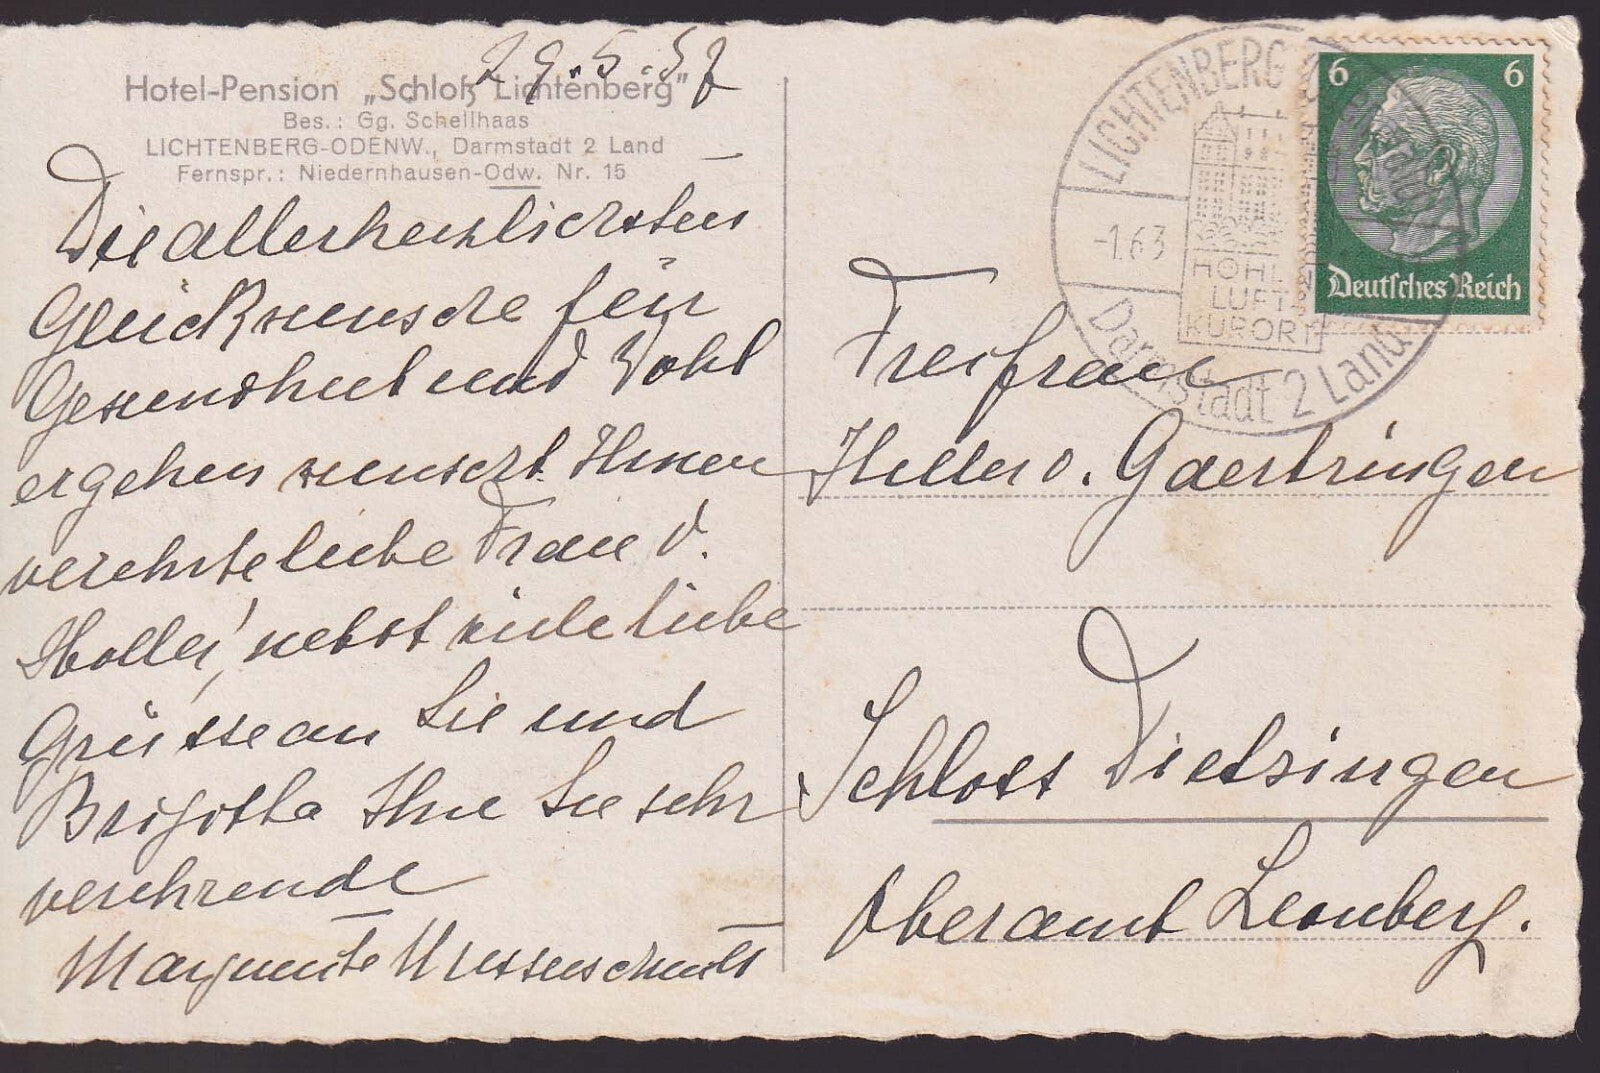 29.5.37
Hotel-Pension „Schloß Lichtenberg"
Bes.: Gg. Schellhaas
LICHTENBERG-ODENW., Darmstadt 2 Land
Fernspr.: Niedernhausen-Odw. Nr. 15
Die allerherzlichsten
Glückwünsche für
Gesundheit und Wohl
ergehen wünscht Ihnen
verehrte liebe Frau v.
Holler, nebst viele liebe
Grüsse an Sie und
Brigitta Ihre Sie sehr
verehrende
Marguerite
LICHTENBERG
-1.6.3
HÖHEN
LUFT
KURORT
Darmstadt 2 Land
6 6
Deutsches Reich
Freifrau
Hiller v. Gaertringen
Schloss Dietzingen
Oberamt Leonberg.